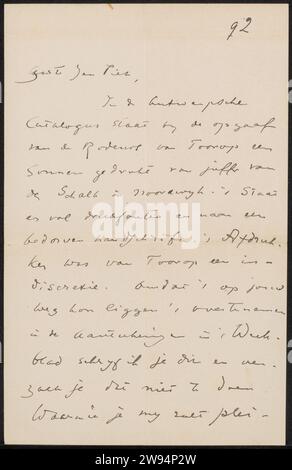 92
Beste Jan Piet,
In de Antwerpsche
Catalogus staat bij de opgaaf
van de Rodenol van Toorop een
Sonnet gedrukt van juffr van
der Schalk in Noordwijk. 't Staat
er vol drukfouten en naar een
bedorven handschrift. 't Afdruk-
ken was van Toorop een in-
discretie. Omdat 't op jouw
weg kon liggen 't over te nemen
in de aanteekeningen in 't Week-
blad schrijf ik je dit en ver-
zoek je dit niet te doen
Waarmee je mij zult plei-
alamy
Image ID: 2W94P2W
www.alamy.com